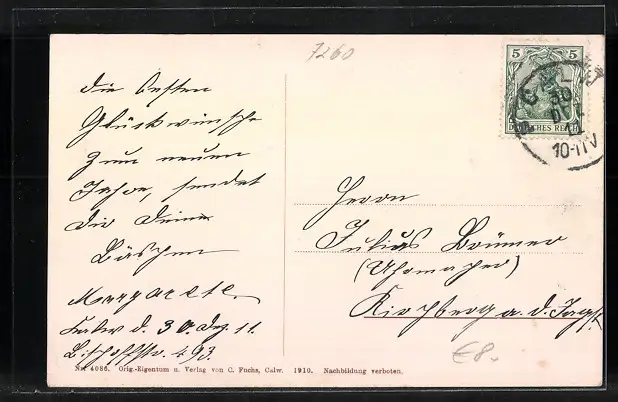 7260
5 5
DEUTSCHES REICH
CALW
30
DEZ
11
10-11V
Die besten
Glückwünsche
zum neuen
Jahre, sendet
Dir Deine
Bäschen
Margarete.
Calw d. 30. Dez. 11.
Bischoffstr. 493.
Herrn
Julius Brümer
(Uhrmacher)
Kirchberg a. d. Jagst
€8.-
Nr. 4086. Orig.-Eigentum u. Verlag von C. Fuchs, Calw. 1910. Nachbildung verboten.